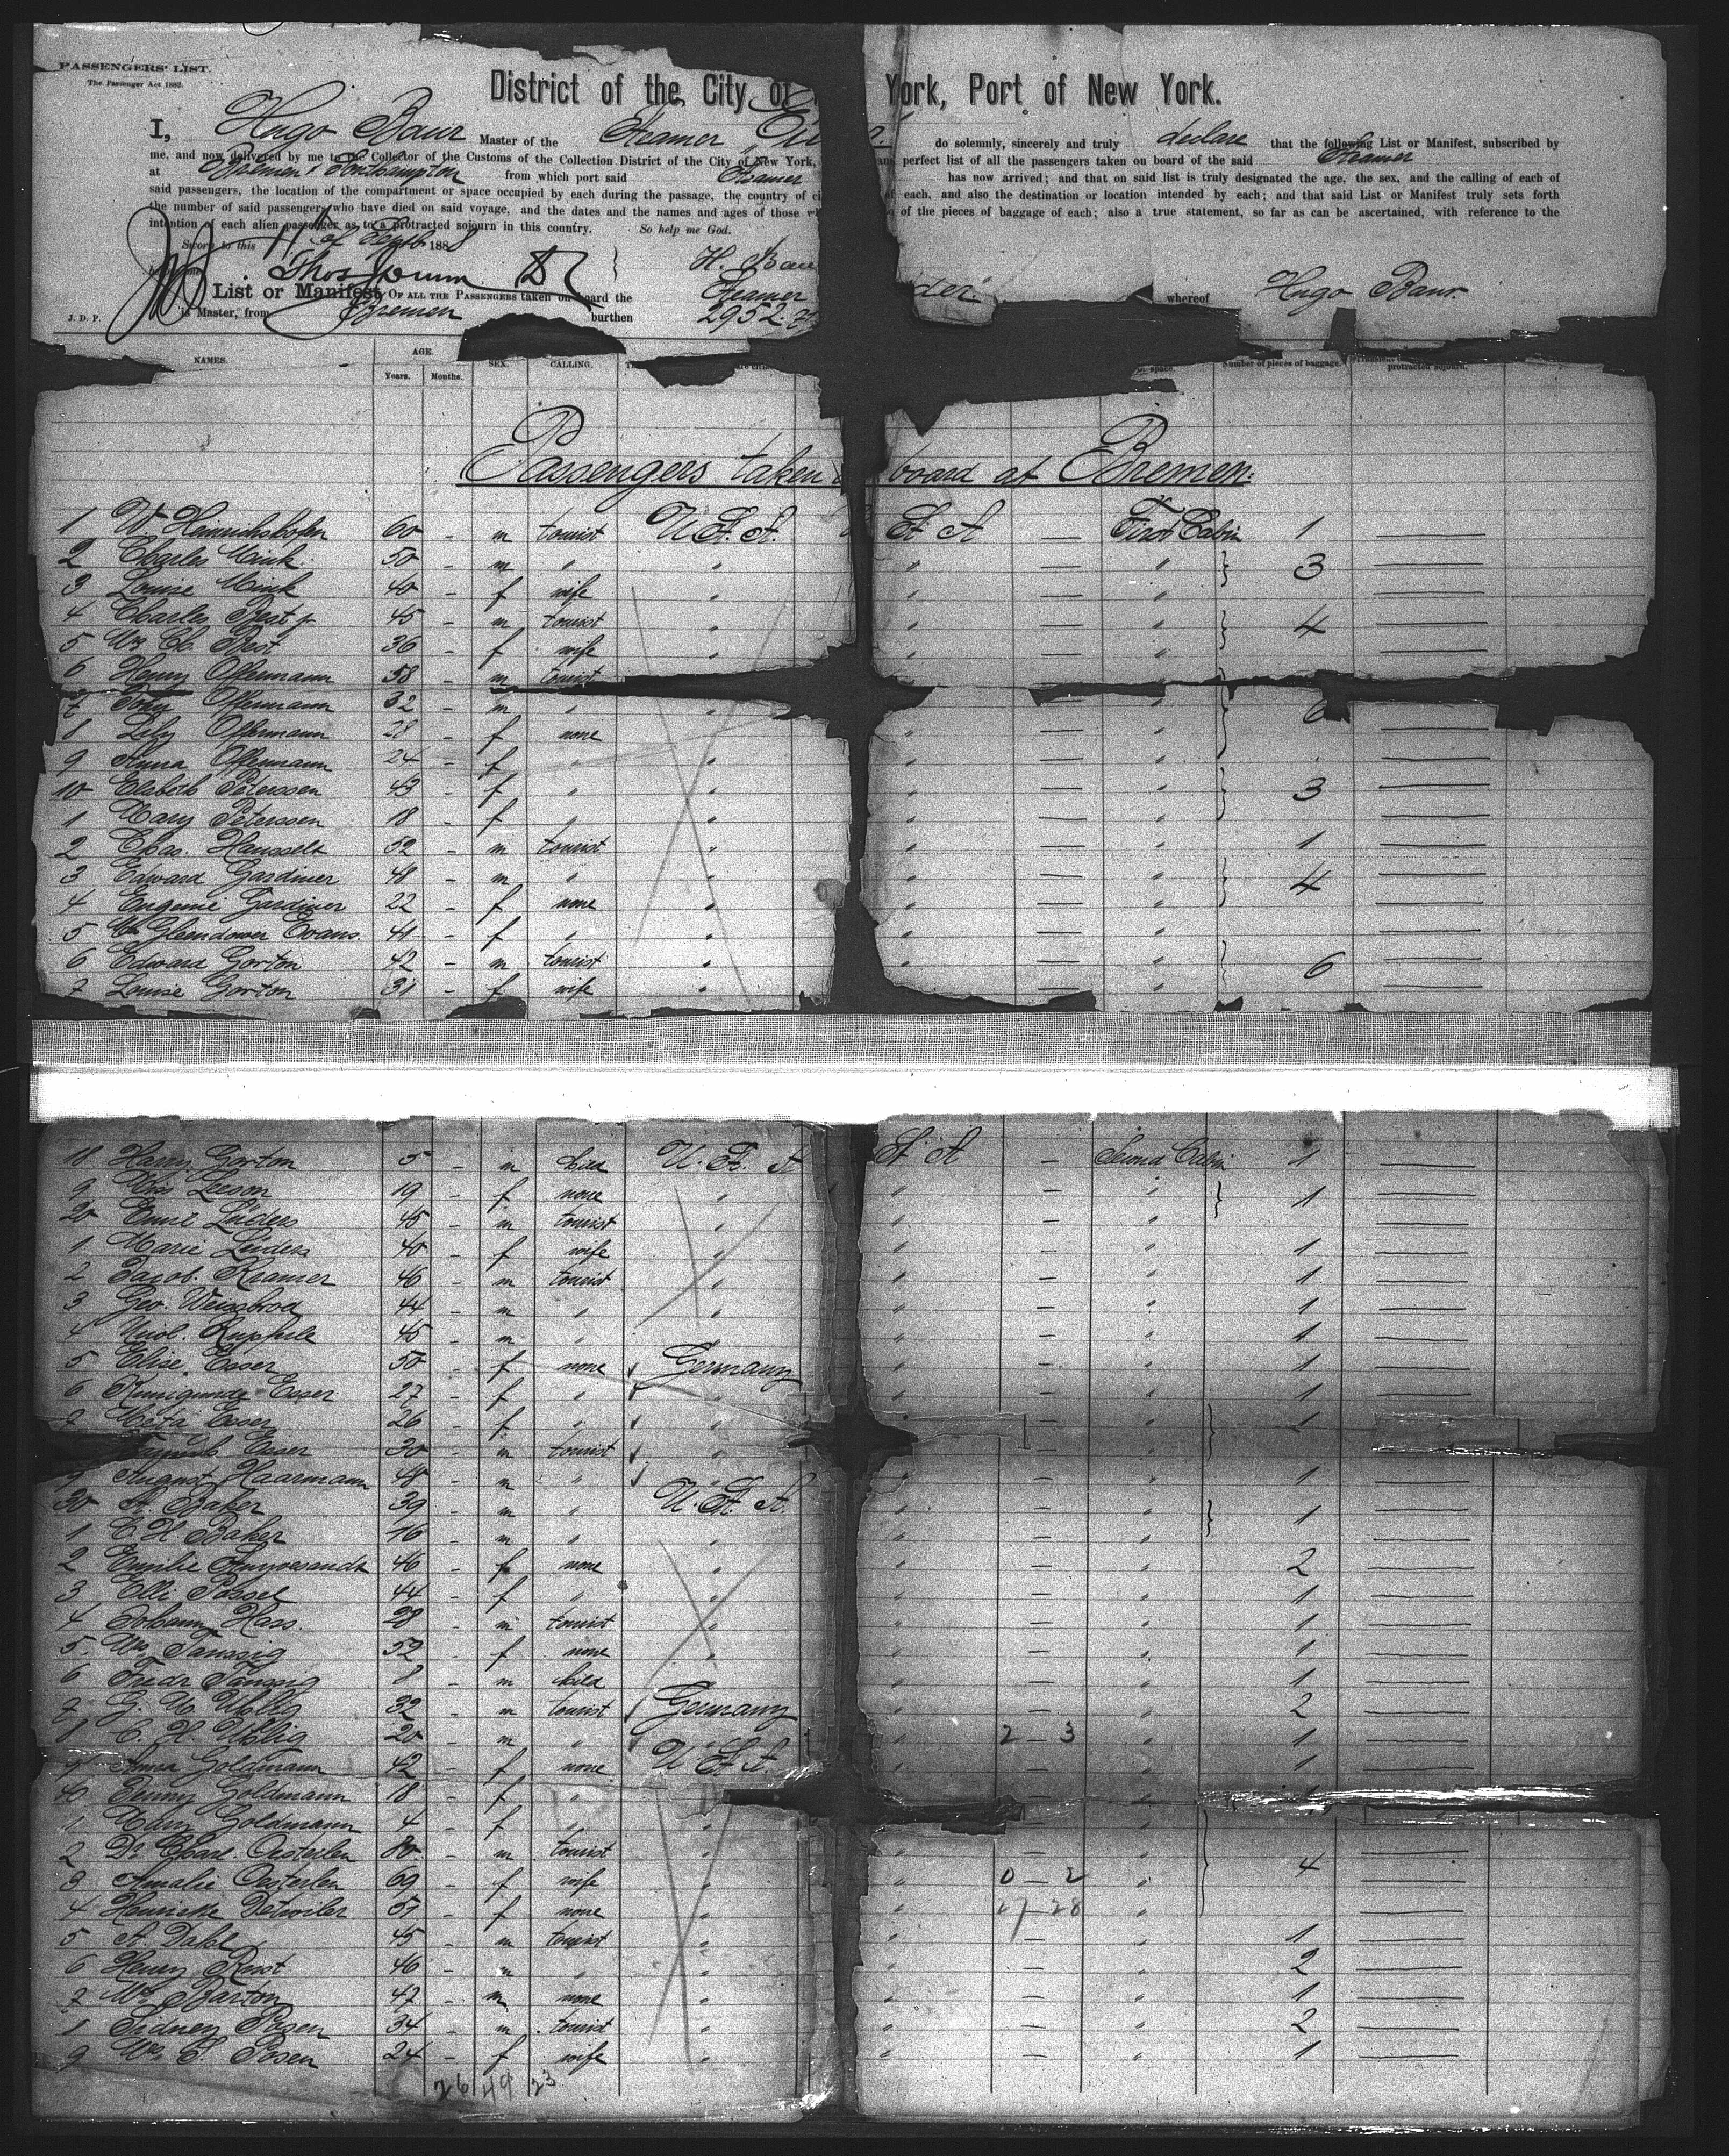 PASSENGERS' LIST.
The Passenger Act 1882.
District of the City of York, Port of New York.
I, Hugo Baur Master of the Steamer do solemnly, sincerely and truly declare that the following List or Manifest, subscribed by
me, and now delivered by me to the Collector of the Customs of the Collection District of the City of New York, perfect list of all the passengers taken on board of the said Steamer
at Bremen & Southampton from which port said Steamer has now arrived; and that on said list is truly designated the age, the sex, and the calling of each of
said passengers, the location of the compartment or space occupied by each during the passage, the country of of each, and also the destination or location intended by each; and that said List or Manifest truly sets forth
the number of said passengers who have died on said voyage, and the dates and the names and ages of those of the pieces of baggage of each; also a true statement, so far as can be ascertained, with reference to the
intention of each alien passenger as to a protracted sojourn in this country. So help me God.
Sworn to this 11th of Septb 1888
H. Baur
List or Manifest OF ALL THE PASSENGERS taken on board the Steamer whereof Hugo Baur
J. D. P. is Master, from Bremen burthen 2952
NAMES. AGE. SEX. CALLING. Number of pieces of baggage. protracted sojourn.
Years. Months.
Passengers taken board at Bremen:
1 W Heinrichshofen 60 - m tourist U. St. A. St A — First Cabin 1 —
2 Charles Mink 50 - m " " " — " } 3 —
3 Louise Mink 40 - f wife " — " —
4 Charles Best jr 45 - m tourist " " — " } 4 —
5 Mrs Ch. Best 36 - f wife " " — " —
6 Henry Offermann 58 - m tourist
7 John Offermann 32 - m " " — " 6 —
8 Lily Offermann 28 - f none " — " —
9 Anna Offermann 24 - f " " " — " —
10 Elsbeth Peterssen 43 - f " " " — " } 3 —
1 Mary Peterssen 18 - f " " " — " —
2 Chas. Hausselt 52 - m tourist " " — " 1 —
3 Edward Gardiner 48 - m " " " — " } 4 —
4 Eugenie Gardiner 22 - f none " " — " —
5 Glendower Evans. 41 - f " " " — " —
6 Edward Gorton 42 - m tourist " " — " } 6 —
7 Louise Gorton 31 - f wife " — " —
18 Harry Gorton 5 - m child U. St. A St A — Second Cabin 1 —
9 Miss Leeson 19 - f none " " — " } 1 —
20 Emil Lüders 45 - m tourist " " — " —
1 Marie Lüders 40 - f wife " " — " 1 —
2 Jacob Kramer 46 - m tourist " " — " 1 —
3 Geo. Weissbrod 44 - m " " " — " 1 —
4 Nicol. Kupferle 45 - m " " — " 1 —
5 Elise Esser 50 - f none Germany " — " 1 —
6 Kunigunde Esser 27 - f " " " — " 1 —
7 Meta Esser 26 - f " " " — " } 1 —
Esser 30 - m tourist " — " —
9 August Haarmann 48 - m " " " — " 1 —
30 A. Baker 39 - m " U. St. A. " — " } 1 —
1 C. H Baker 16 - m " " " — " —
2 Emilie 46 - f none " " — " 2 —
3 Elli Possel 44 - f " " " — " 1 —
4 Johann Hass. 28 - m tourist " " — " 1 —
5 Mrs Taussig 52 - f none " — " 1 —
6 Fredr Taussig 8 - m child " — " 1 —
7 G. Uhlig 32 - m tourist Germany " — " 2 —
8 C. H. Uhlig 20 - m " " 2 — 3 " 1 —
9 Anna Goldmann 42 - f none U. St A. " — " 1 —
40 Jenny Goldmann 18 - f "
1 Mary Goldmann 4 - f " " — " —
2 Dr. Oesterlen 80 - m tourist " " — " —
3 Amalie Oesterlen 69 - f wife " " 0 — 2 " 4 —
4 Detwiler 51 - f none " " 27 — 28 " —
5 A. Dahl 45 - m tourist " " — " 1 —
6 Henry Rest 46 - m " " " — " 2 —
7 Barton 47 - m none " " — " 1 —
8 Sidney Posen 34 - m tourist " " — " 2 —
9 Mrs S. Posen 24 - f wife " " — " 1 —
26 49 23